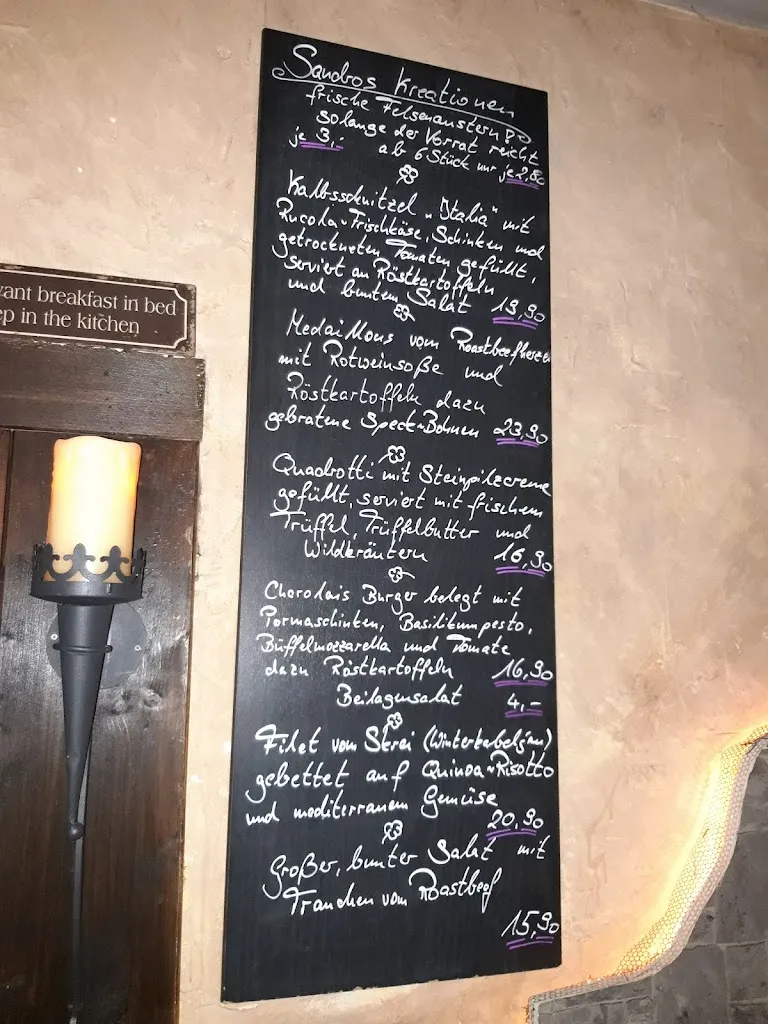 want breakfast in bed
ep in the kitchen
Sandros Kreationen
frische Felsenaustern
solange der Vorrat reicht
je 3,-
ab 6 Stück nur je 2,80
Kalbsschnitzel „Italia" mit
Rucola-Frischkäse, Schinken und
getrockneten Tomaten gefüllt,
serviert an Röstkartoffeln
und buntem Salat 19,90
Medaillons vom Roastbeefherzen
mit Rotweinsoße und
Röstkartoffeln dazu
gebratene Speck-Bohnen 23,90
Quadrotti mit Steinpilzcreme
gefüllt, serviert mit frischem
Trüffel, Trüffelbutter und
Wildkräutern 16,90
Charolais Burger belegt mit
Parmaschinken, Basilikumpesto,
Büffelmozzarella und Tomate
dazu Röstkartoffeln 16,90
Beilagensalat 4,-
Filet vom Skrei (Winterkabeljau)
gebettet auf Quinoa-Risotto
und mediterranem Gemüse
20,90
Großer, bunter Salat mit
Tranchen vom Roastbeef
15,90